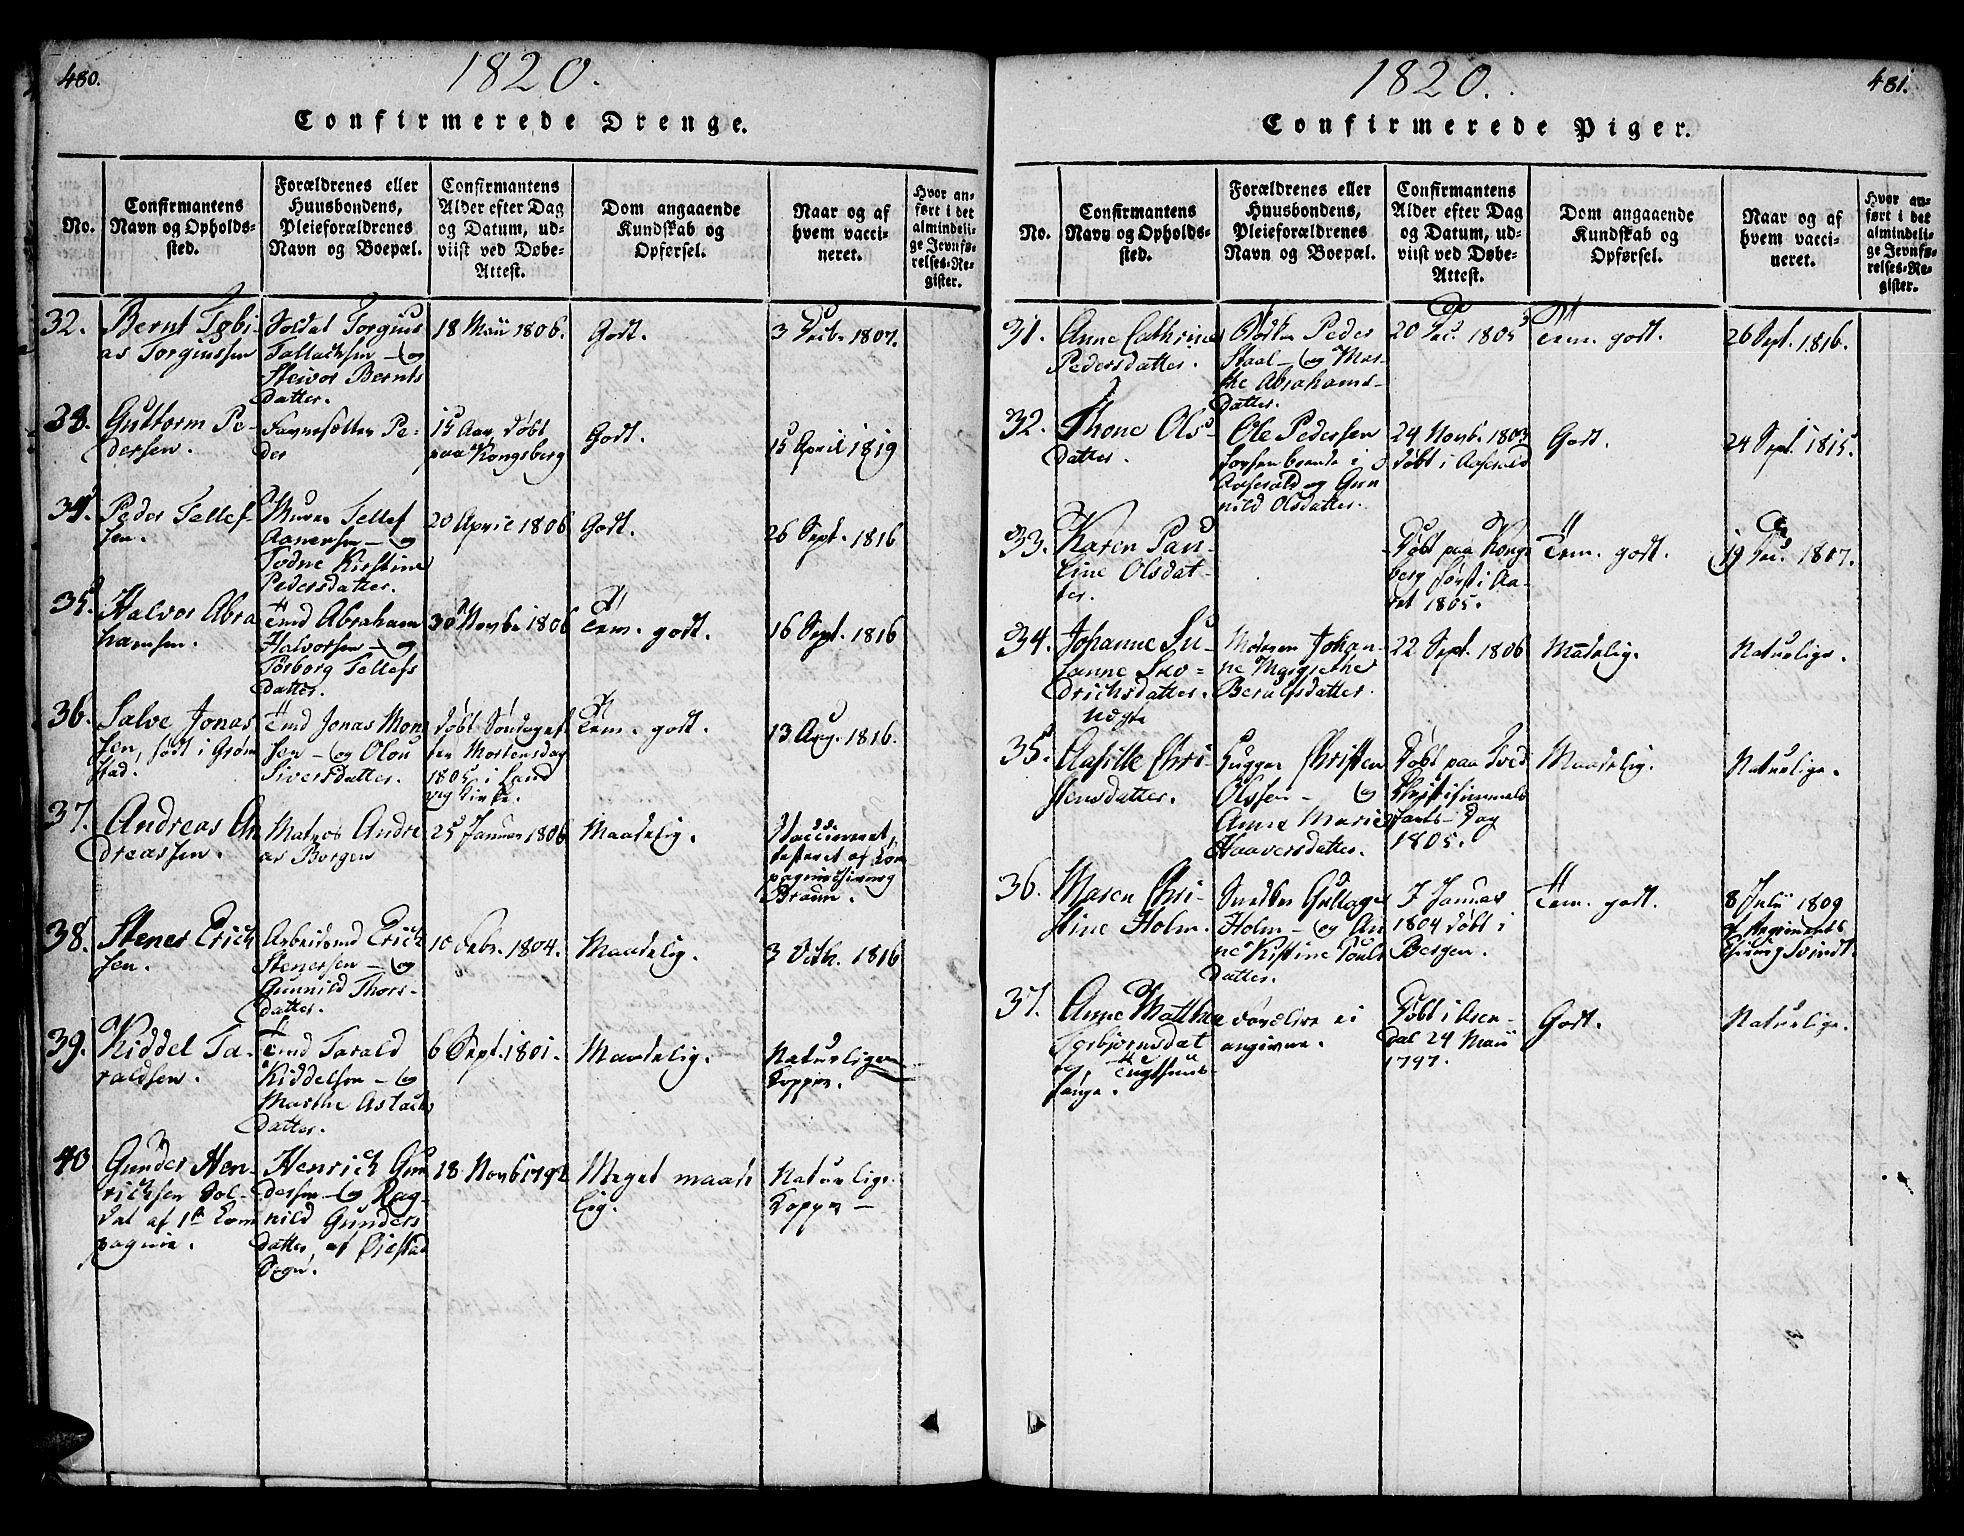 480.
1820.
Confirmerede Drenge.
No.
Confirmantens
Navn og Opholds-
sted.
Forældrenes eller
Huusbondens,
Pleieforældrenes
Navn og Boepæl.
Confirmantens
Alder efter Dag
og Datum, ud-
viist ved Døbe-
Attest.
Dom angaaende
Kundskab og
Opførsel.
Naar og af
hvem vacci-
neret.
Hvor an-
ført i det
almindeli-
ge Jevnfø-
relses-Re-
gister.
32.
Bernt Tobi-
as Torgiussen
Soldat Torgius
Tallachsen - og
Steivor Bernts
datter.
18 Maii 1806.
Godt.
3 Decbr. 1807.
33.
Guttorm Pe-
dersen.
Pe-
der
15 Aar døbt
paa Kongsberg
Godt.
15 April 1819
34.
Peder Tellef-
sen.
Murer Tellef
Aanensen - og
Todne Kirstine
Pedersdatter.
20 April 1806
Godt.
26 Sept. 1816
35.
Halvor Abra
hamsen.
Tmd Abraham
Halvorsen - og
Torborg Tellefs
datter.
30 Novbr 1806
Tem. godt.
16 Sept. 1816
36.
Salve Jonas
sen, født i Grom
stad.
Tmd Jonas Mon
sen - og Olou
Siversdatter.
døbt Søndagen
før Mortensdag
1805 i Land
vig Kirke.
Tem. godt.
13 Aug. 1816.
37.
Andreas An
dreassen.
Matros Andre
as Borgen
25 Januar 1806
Maadelig.
Vaccineret,
testeret af Com
pagniechirurg
Braun.
38.
Stener Erich
sen.
Arbeidsmd Erich
Stenersen - og
Gunnild Thors-
datter.
10 Febr. 1804.
Maadelig.
3 Octbr. 1816
39.
Kiddel Ta-
raldsen.
Tmd Tarald
Kiddelsen - og
Marthe Astachs
datter.
6 Sept. 1801.
Maadelig.
Naturlige
Kopper.
40
Gunder Hen-
richsen Sol-
dat af 1ste Com
pagnie.
Henrich Gun
dersen - og Rag-
nild Gunders
datter, af Øiestad
Sogn.
18 Novb 1792
Meget maade
lig.
Naturlige
Kopper -
481.
1820.
Confirmerede Piger.
No.
Confirmantens
Navn og Opholds-
sted.
Forældrenes eller
Huusbondens,
Pleieforældrenes
Navn og Boepæl.
Confirmantens
Alder efter Dag
og Datum, ud-
viist ved Døbe-
Attest.
Dom angaaende
Kundskab og
Opførsel.
Naar og af
hvem vacci-
neret.
Hvor an-
ført i det
almindeli-
ge Jevnfø-
relses-Re-
gister.
31.
Anne Cathrine
Pedersdatter.
Peder
Staal - og Mar-
the Abrahams-
datter.
20 Dec. 1805
Tem. godt.
26 Sept. 1816.
32.
Thone Ols-
datter.
Ole Pedersen
boende i
Aaserald og Gun
nild Olsdatter.
24 Novb. 1803
døbt i Aaserald
Godt.
24 Sept. 1815.
33.
Karen Pau-
line Olsdat-
ter.
Døbt paa Kongs
berg først i Aa-
ret 1805.
Tem. godt.
19 Dec. 1807.
34.
Johanne Su-
sanne
drichsdatter.
uægte
Moderen Johan-
ne Margrethe
Berulfsdatter.
22 Sept. 1806
Madelig.
Naturlige.
35.
Aasille Chri-
stensdatter.
Hugger Christen
Olssen - og
Anne Marie
Haaversdatter.
Døbt paa Tved
Christihimmels
farts-Dag
1805.
Maadelig.
Naturlige.
36.
Maren Chri-
stine Holm.
Snedker Guttager
Holm - og An
ne Kistine Pouls
datter.
7 Januar
1804 døbt i
Bergen.
Tem. godt.
8 Julii 1809
af Regiments
Chirurg Tvindt.
37.
Anne Matthea
Esbjørnsdat
ter, Tugthuus-
fange.
Forældre ei
angivne.
Døbt i Aren-
dal 24 Maii
1797.
Godt.
Naturlige.